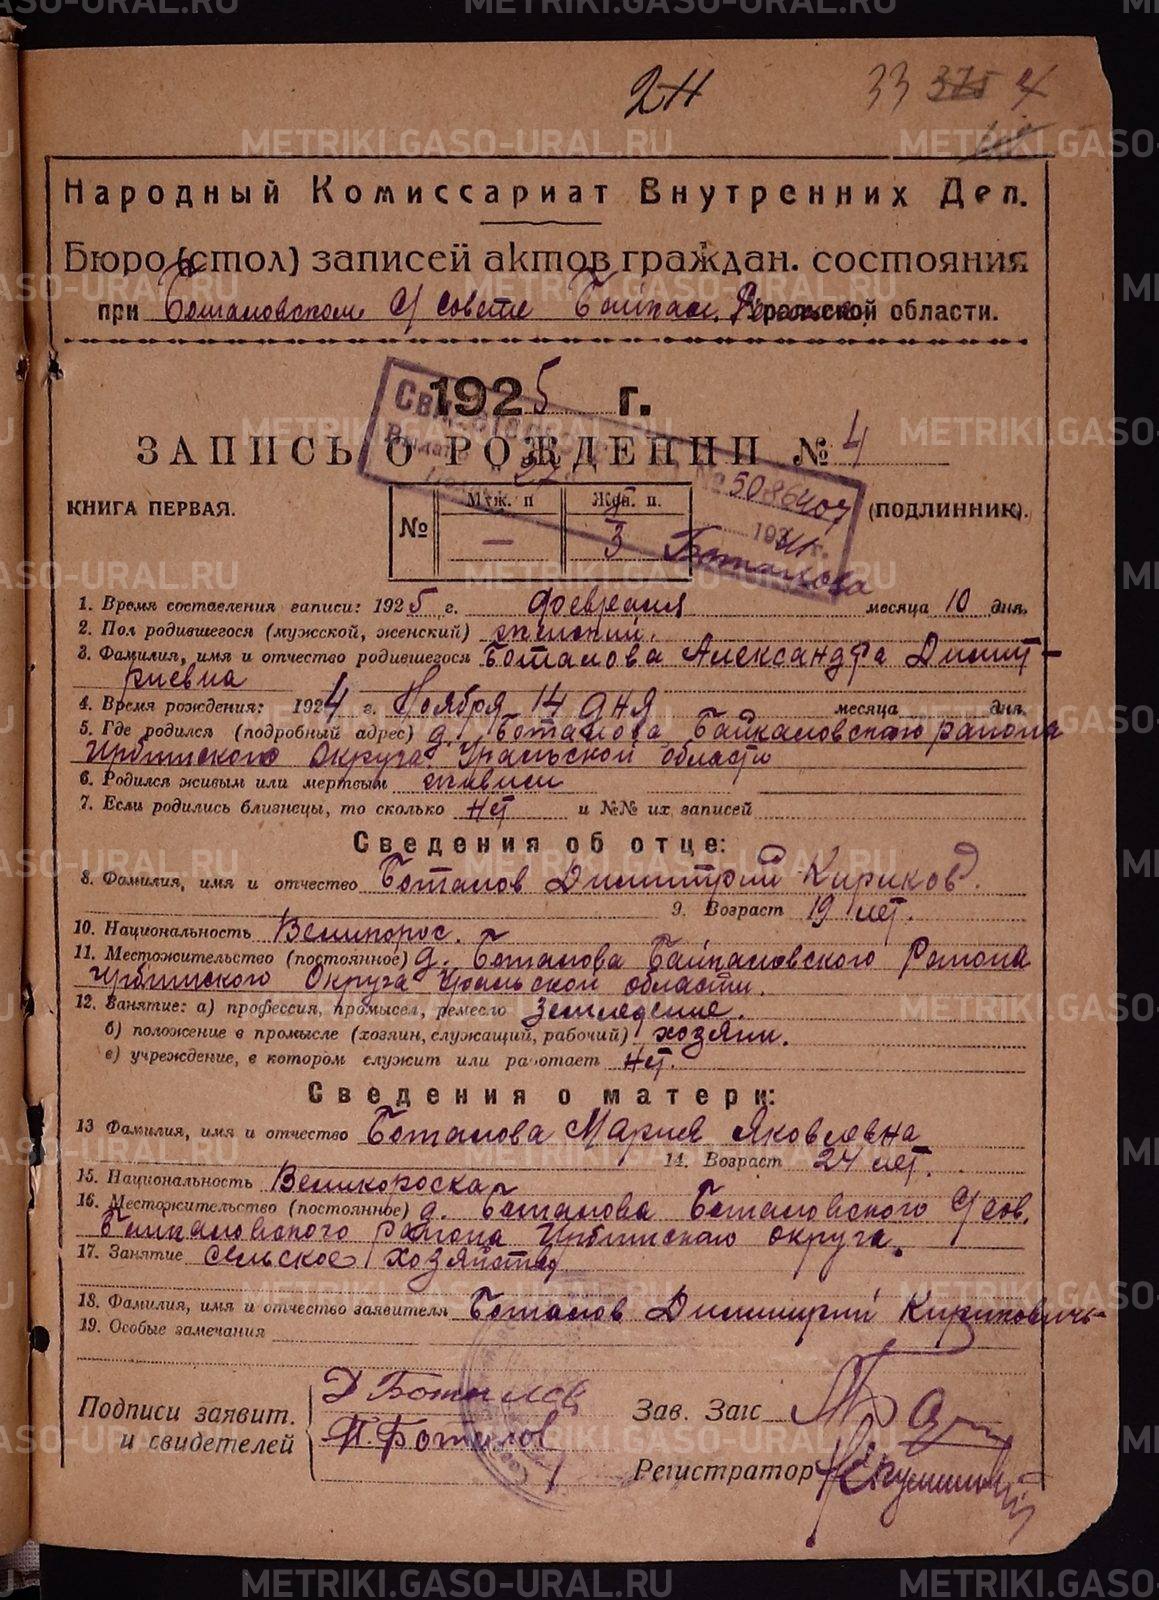 24
33 375 4
Народный Комиссариат Внутренних Дел.
Бюро (стол) записей актов граждан. состояния
при Боталовском С/совете Байкал. Района Уральской области.
1925 г.
ЗАПИСЬ О РОЖДЕНИИ № 4
КНИГА ПЕРВАЯ.
(ПОДЛИННИК).
№ Муж. п Жен. п.
— 3
№ 508640
Боталова
1. Время составления записи: 1925 г. февраля месяца 10 дня.
2. Пол родившегося (мужской, женский) женский.
3. Фамилия, имя и отчество родившегося Боталова Александра Димит-
риевна
4. Время рождения: 1924 г. Ноября 14 дня месяца дня.
5. Где родился (подробный адрес) д. Боталова Байкаловского района
Ирбитского Округа Уральской области
6. Родился живым или мертвым живыи
7. Если родились близнецы, то сколько нет и №№ их записей
Сведения об отце:
8. Фамилия, имя и отчество Боталов Димитрий Кириков.
9. Возраст 19 лет.
10. Национальность Великорос.
11. Местожительство (постоянное) д. Боталова Байкаловского Района
Ирбитского Округа Уральской области.
12. Занятие: а) профессия, промысел, ремесло земледелие.
б) положение в промысле (хозяин, служащий, рабочий) хозяин.
в) учреждение, в котором служит или работает нет.
Сведения о матери:
13 Фамилия, имя и отчество Боталова Мария Яковлевна
14. Возраст 24 лет.
15. Национальность Великороска
16. Местожительство (постоянное) д. Боталова Боталовского С/сов.
Байкаловского района Ирбитского округа.
17. Занятие сельское хозяйство
18. Фамилия, имя и отчество заявителя Боталов Димитрий Кирикович-
19. Особые замечания
Подписи заявит.
и свидетелей
Д Боталов
Боталов
Зав. Загс
Регистратор
METRIKI.GASO-URAL.RU